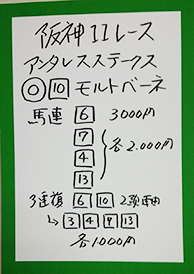 阪神11レース
アンタレスステークス
◎ 10 モルトベーネ
馬連 6 3000円
7
4 各2.000円
13
3連複 6 10 2頭軸
↳ 3 4 9 13
各1000円